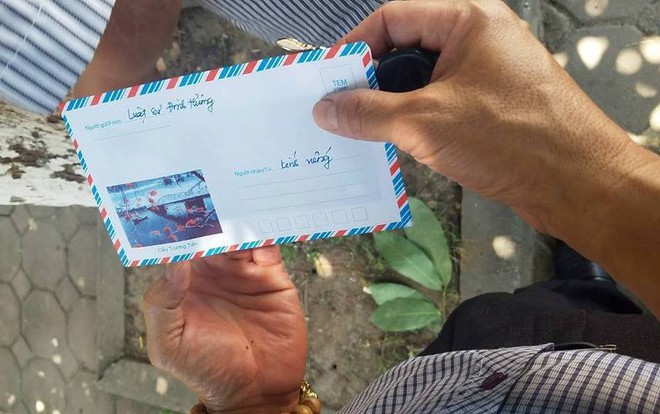 TEM
Người gửi/From: Luật sư Đình Hùng
Người nhận/To: kính viếng
Cầu Trường Tiền